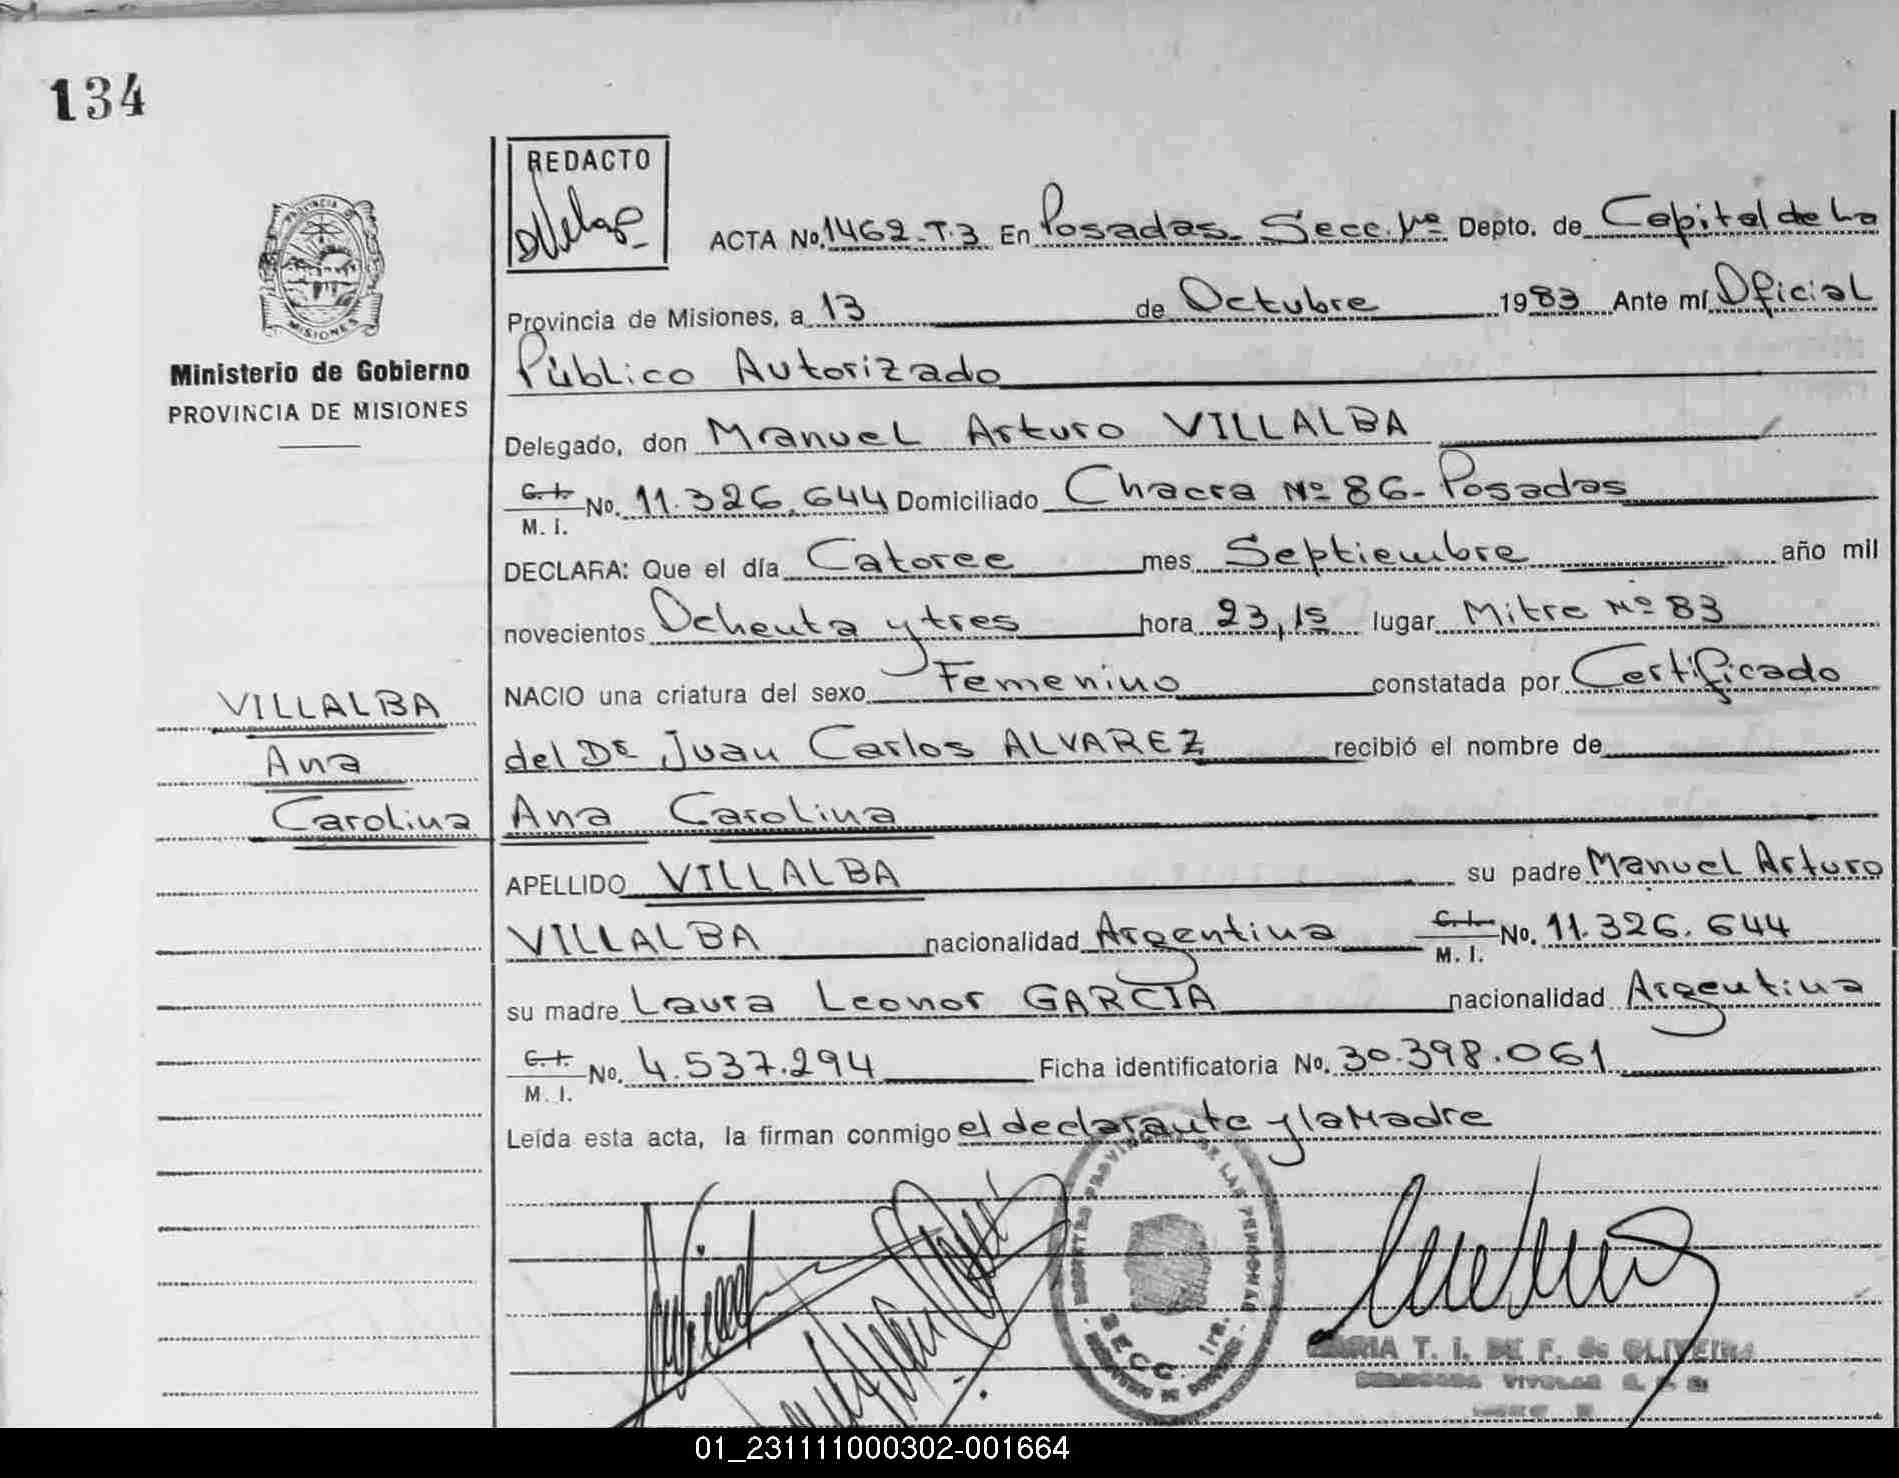 134
REDACTO
PROVINCIA DE
MISIONES
Ministerio de Gobierno
PROVINCIA DE MISIONES
ACTA No. 1462-T.3 En Posadas. Secc. 1ra Depto. de Capital de La
Provincia de Misiones, a 13 de Octubre 1983 Ante mí Oficial
Público Autorizado
Delegado, don Manuel Arturo VILLALBA
C.I. No. 11.326.644 Domiciliado Chacra Nº 86- Posadas
M. I.
DECLARA: Que el día Catorce mes Septiembre año mil
novecientos Ochenta y tres hora 23,15 lugar Mitre Nº 83
NACIO una criatura del sexo Femenino constatada por Certificado
del Dr Juan Carlos ALVAREZ recibió el nombre de
Ana Carolina
VILLALBA
Ana
Carolina
APELLIDO VILLALBA su padre Manuel Arturo
VILLALBA nacionalidad Argentina C.I. No. 11.326.644
M. I.
su madre Laura Leonor GARCIA nacionalidad Argentina
C.I. No. 4.537.294 Ficha identificatoria No. 30.398.061
M. I.
Leída esta acta, la firman conmigo el declarante y la Madre
DE LAS PERSONAS
SECC. 1ra.
MARIA T. I. DE F. de OLIVEIRA
01_231111000302-001664